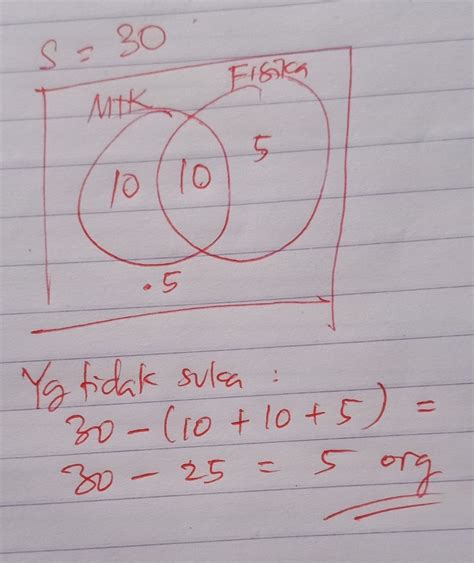 S = 30
MtK
Fisika
10
10
5
.5
Yg tidak suka :
30 - (10 + 10 + 5) =
30 - 25 = 5 org